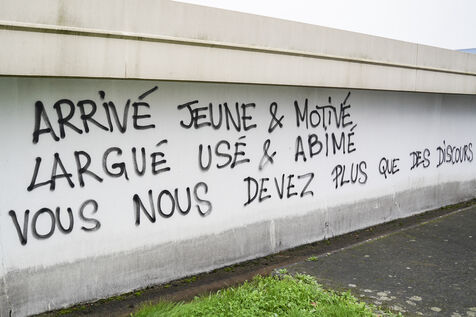 ARRIVÉ JEUNE & MOTIVÉ
LARGUÉ USÉ & ABIMÉ
VOUS NOUS DEVEZ PLUS QUE DES DISCOURS